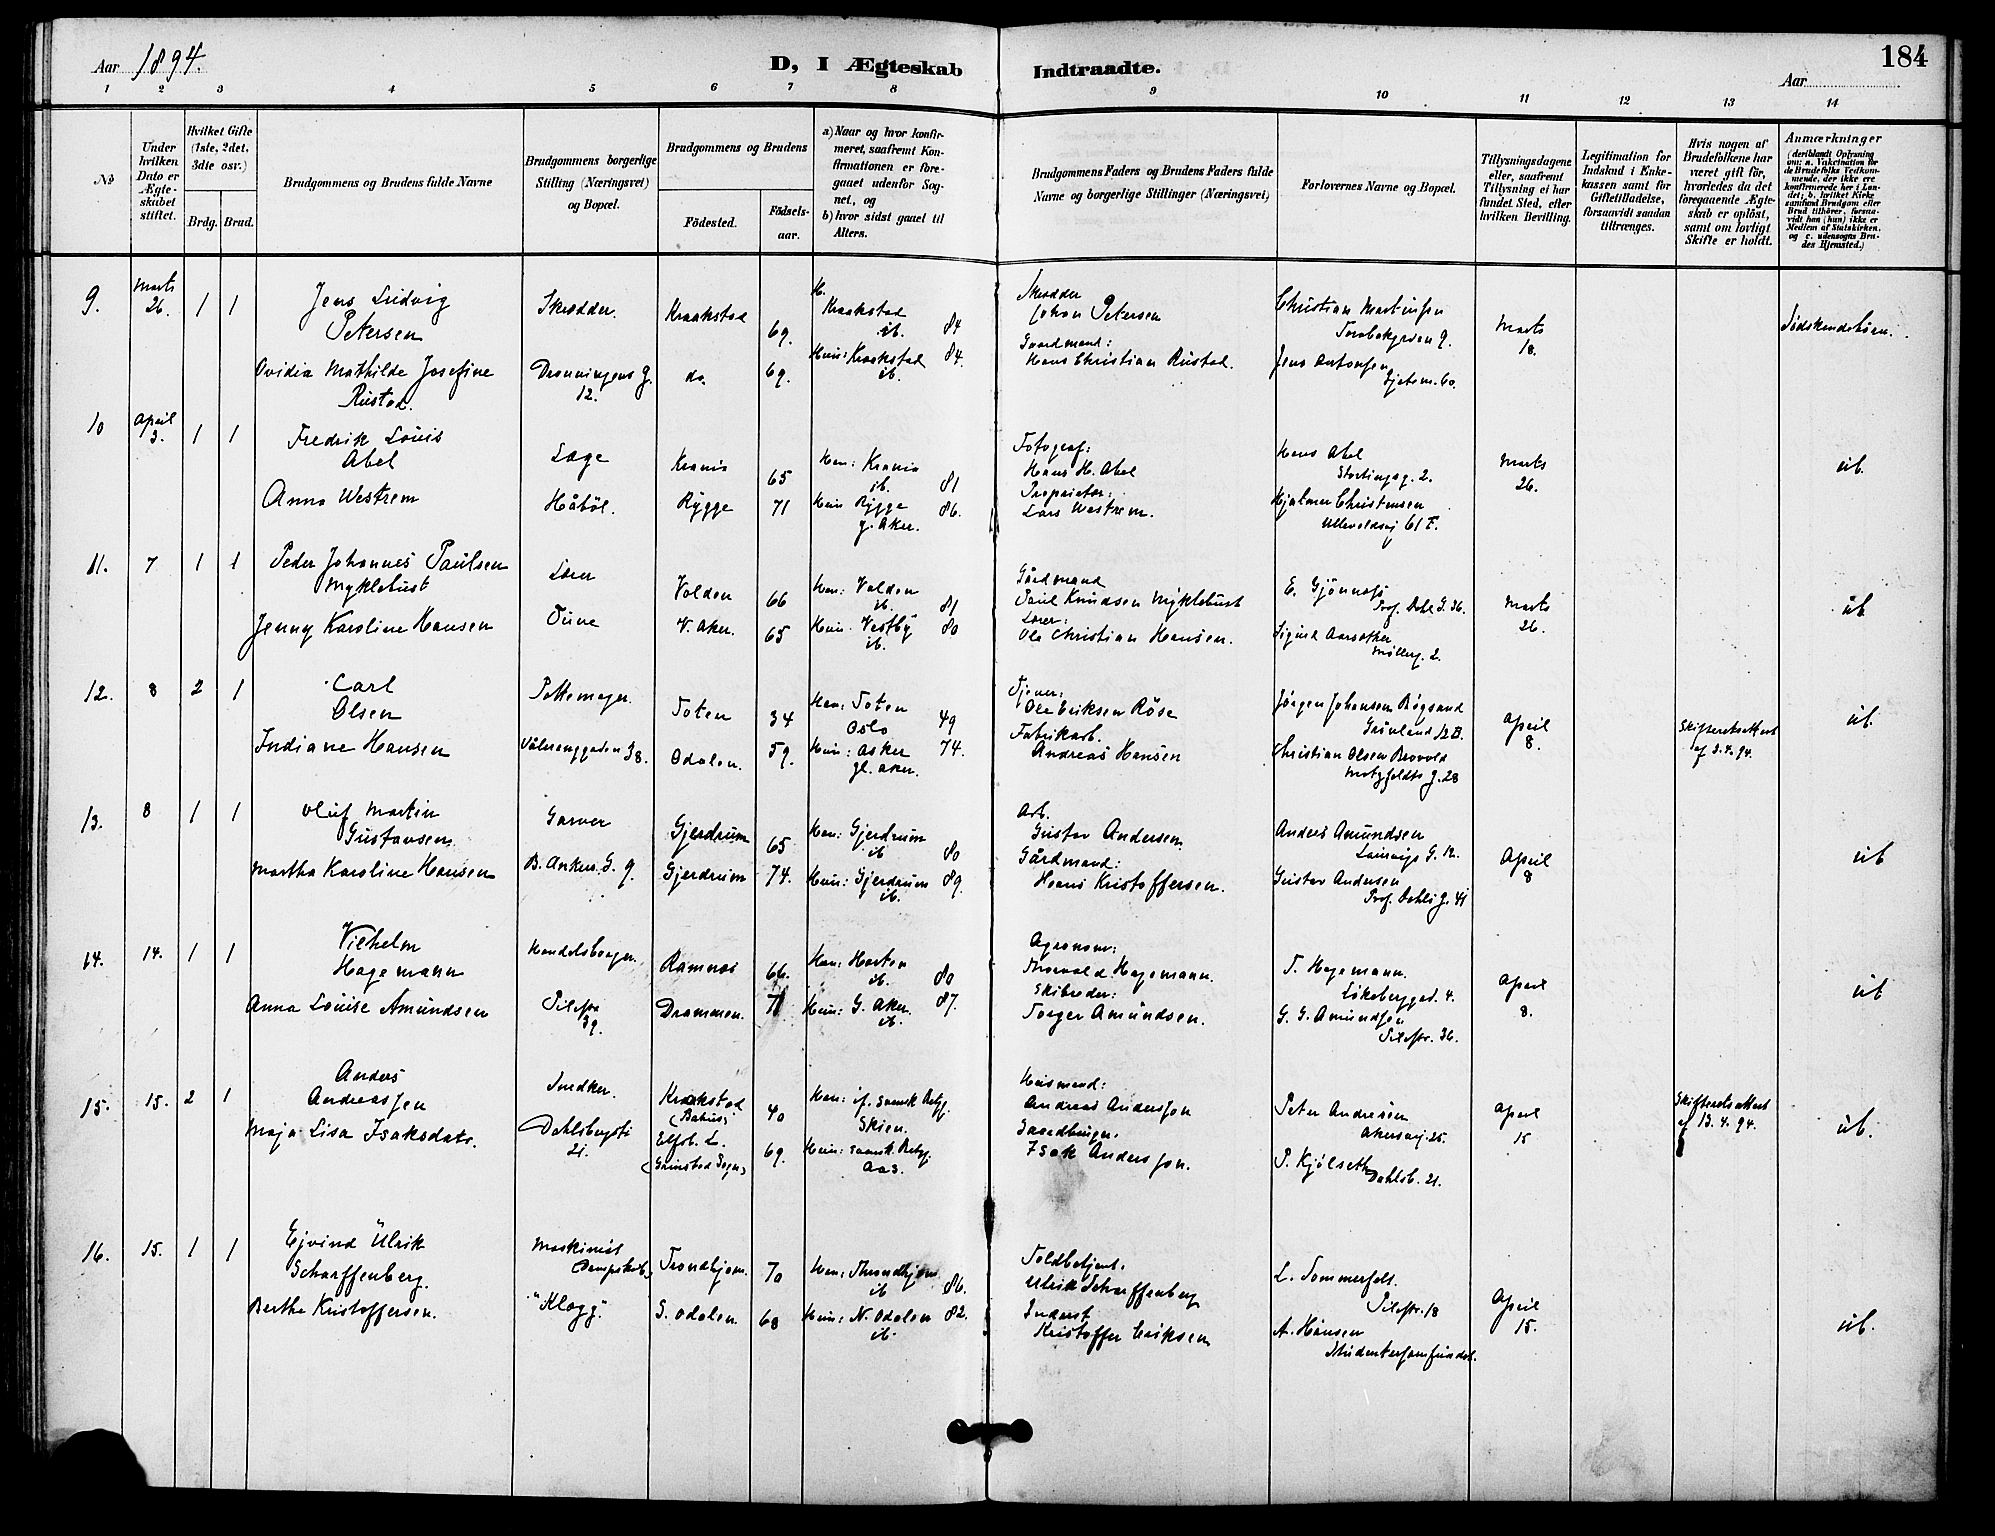 Aar 1894.
D, I Ægteskab Indtraadte.
184
Aar
1 2 3 4 5 6 7 8 9 10 11 12 13 14
No
Under hvilken Dato er Ægteskabet stiftet.
Hvilket Gifte (1ste, 2det, 3die osv.)
Brdg. Brud.
Brudgommens og Brudens fulde Navne
Brudgommens borgerlige Stilling (Næringsvei) og Bopæl.
Brudgommens og Brudens
Fødested.
Fødsels-aar.
a) Naar og hvor konfirmeret, saafremt Konfirmationen er foregaaet udenfor Sognet, og
b) hvor sidst gaaet til Alters.
Brudgommens Faders og Brudens Faders fulde Navne og borgerlige Stillinger (Næringsvei)
Forlovernes Navne og Bopæl.
Tillysningsdagene eller, saafremt Tillysning ei har fundet Sted, efter hvilken Bevilling.
Legitimation for Indskud i Enkekassen samt for Giftetilladelse, forsaavidt saadan tiltrænges.
Hvis nogen af Brudefolkene har været gift før, hvorledes da det foregaaende Ægteskab er opløst, samt om lovligt Skifte er holdt.
Anmærkninger
(deriblandt Oplysning om: a. Vakcination for de Brudefolks Vedkommende, der ikke ere konfirmerede her i Landet; b. hvilket Kirkesamfund Brudgom eller Brud tilhører, forsaavidt han (hun) ikke er Medlem af Statskirken, og c. udensogns Brudes Hjemsted.)
9. Marts 26. 1 1
Jens Ludvig Petersen
Skrædder.
Kraakstad 69.
H. Kraakstad 84
ib.
Skrædder
Johan Petersen
Christian Martinsen
9.
Marts 18.
Ovidia Mathilde Josefine Rustad.
Dronningens g. 12.
do 69.
Hun: Kraakstad 84.
ib.
Gaardmand:
Hans Christian Rustad.
Jens Antonsen
60.
10 April 3. 1 1
Fredrik Louis Abel
Læge
Krania 65
Han: Krania 81
ib.
Fotograf:
Hans H. Abel
Hans Abel
Stortingsg. 2.
Marts 26.
ib.
Anna Westrem
Håbøl.
Rygge 71
Hun Rygge 86.
g. Aker.
Proprietær:
Lars Westrem.
Hjalmar Christensen
Ullevoldsvj 61 F.
11. 7 1 1
Peder Johannes Paulsen Myklebust
Lærer
Volden 66
Han: Volden 81
ib.
Gårdmand
Paul Knudsen Myklebust
E. Gjønnæss
Prof. Dahls G. 36.
Marts 26.
ib
Jenny Karoline Hansen
Tune
V. Aker. 65
Hun: Vestby 80
ib.
Lærer:
Ole Christian Hansen.
Sigurd Aarsæther
Møllerg. 2.
12. 8 2 1
Carl Olsen
Pottemager.
Toten 34
Han: Toten 49
Oslo
Tjener:
Ole Eriksen Røse
Jørgen Johansen Bøgsand
Grønland 12 B.
April 8.
Skifteretsattest af 3.4.94.
ib.
Indiane Hansen
Vålerenggaden 38.
Odalen. 59.
Hun: Asker 74.
gl. Aker.
Fabrikarb.
Andreas Hansen
Christian Olsen
Motzfeldts g. 28
13. 8 1 1
Oluf Martin Gustavsen
Garver
Gjerdrum 65
Han: Gjerdrum 80
ib
Arb.
Gustav Andersen
Anders Amundsen
G. 12.
April 8
ib
Martha Karoline Hansen
B. Ankers G. 9.
Gjerdrum 74.
Hun: Gjerdrum 89.
ib.
Gårdmand:
Hans Kristoffersen.
Gustav Andersen
Prof. Dahls g. 41
14. 14. 1 1
Vilhelm Hagemann
Handelsborger.
Ramnæs 66.
Han: Horten 80
ib.
Agronom:
Thorvald Hagemann.
T. Hagemann.
Løkeberggad. 4.
April 8.
ib
Anna Louise Amundsen
Pilestr. 39.
Drammen. 71
Hun: G. Aker. 87.
ib.
Skibreder:
Torger Amundsen.
G. G. Amundsen
Pilestr. 36.
15. 15. 2 1
Anders Andreassen
Snedker.
Kraakstad 40
Han: if. Svensk Betg.
Skien.
Husmand:
Andreas Andersson
Peter Andresen
Akersvej 25.
April 15
Skifteretsattest af 13.4.94.
ib.
Maja Lisa Isaksdatr.
Dahlsbergsti 21.
Elfsb. L. 69.
(Grimstad Sogn)
Hun: Svensk Betg.
Aas.
Gaardbruger.
Isak Andersson.
P. Kjølseth
Dahlsb. 21.
16. 15. 1 1
Ejvind Ulrik Scharffenberg.
Maskinist Dampskib
Trondhjem. 70
Han: Throndhjem 86.
ib
Toldbetjent.
Ulrik Scharffenberg
L. Sommerfelt.
Pilestr. 18
April 15.
ib.
Berthe Kristoffersen.
"Klogg".
S. Odalen. 68
Hun: N. Odalen 82.
ib.
Inderst
Kristoffer Eriksen
A. Hansen
Studentersamfundet.